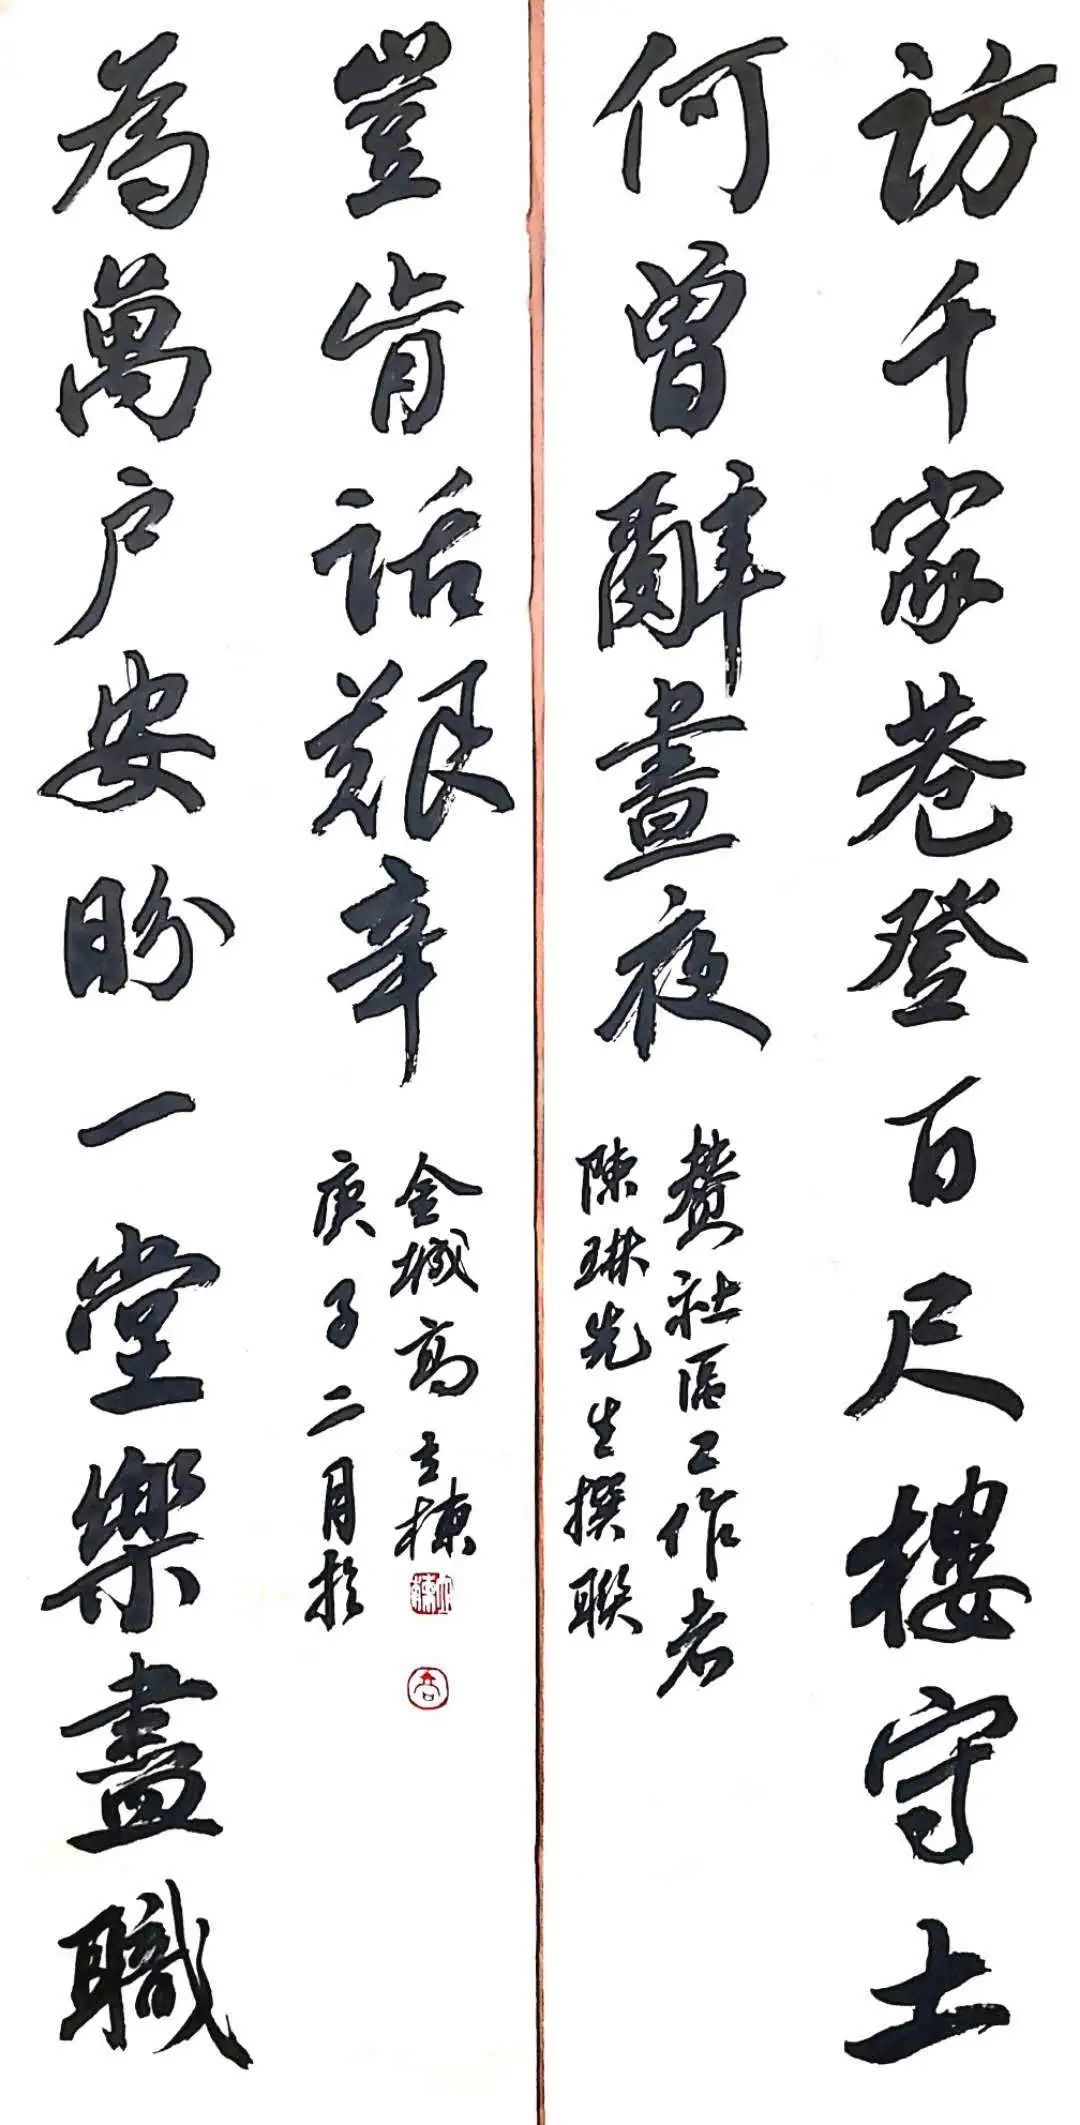 訪千家巷登百尺樓守土
何曾辭晝夜
贊社區工作者
陳琳先生撰聯
為萬户安盼一堂樂盡職
豈肯話艱辛
庚子二月於
金城高棟